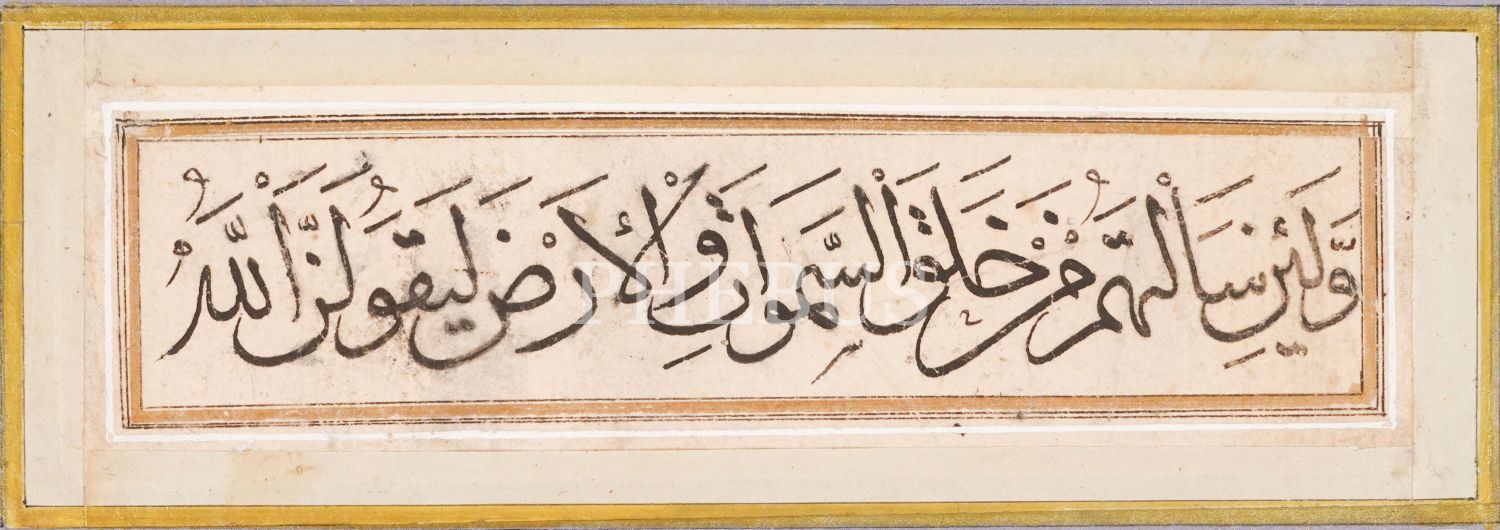 وَلَئِنْ سَأَلْتَهُمْ مَنْ خَلَقَ السَّمَوَاتِ وَالْأَرْضَ لَيَقُولُنَّ اللَّهُ
PHEBUS